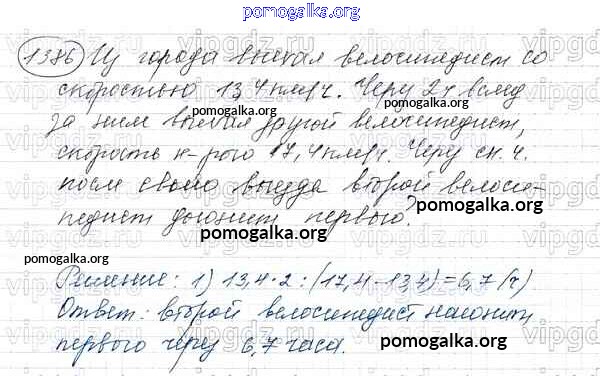 pomogalka.org
1386 Из города выехал велосипедист со
скоростью 13,4 км/ч. Через 2 ч вслед
за ним выехал другой велосипедист,
скорость к-рого 17,4 км/ч. Через ск. ч.
после своего выезда второй велоси-
педист догонит первого?
Решение: 1) 13,4·2:(17,4-13,4)=6,7(ч).
Ответ: второй велосипедист нагонит
первого через 6,7 часа.
pomogalka.org
pomogalka.org
pomogalka.org
pomogalka.org
pomogalka.org
pomogalka.org